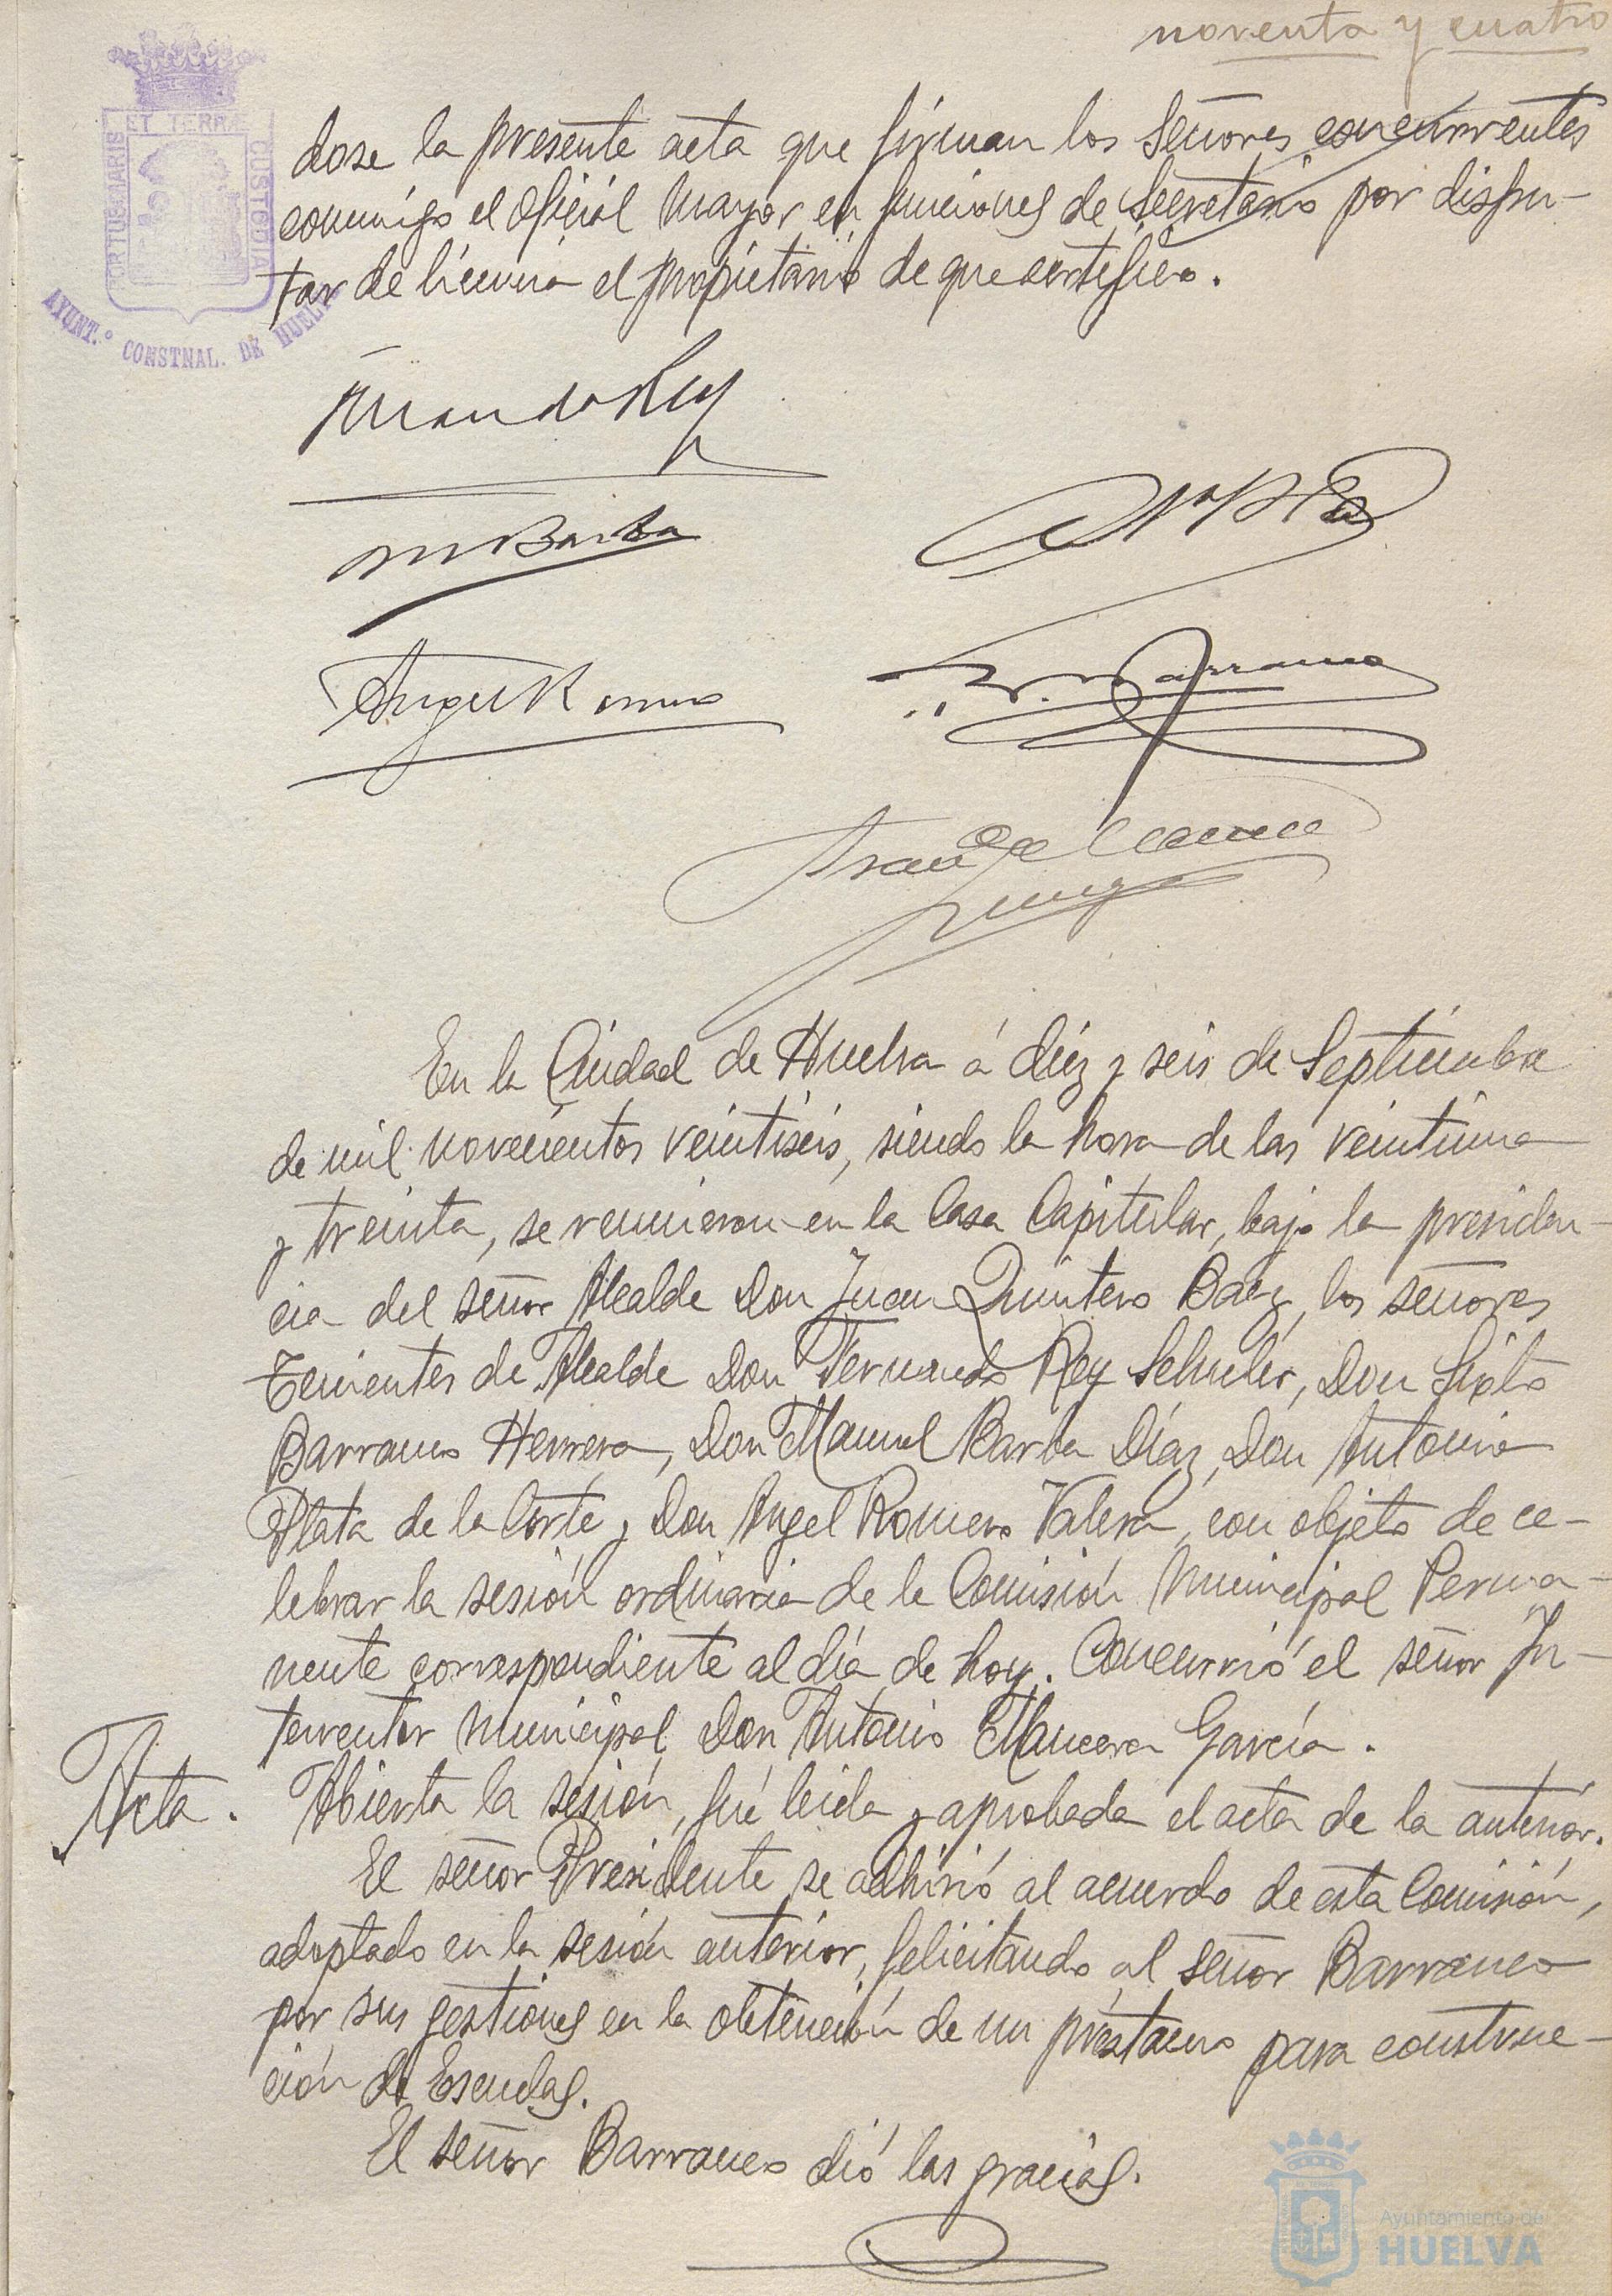 noventa y cuatro
PORTUS MARIS ET TERRÆ CUSTODIA
AYUNT.º CONSTNAL. DE HUELVA
dose la presente acta que firman los Señores concurrentes
conmigo el Oficial Mayor en funciones de Secretario por disfru-
tar de licencia el propietario de que certifico.
M Barba
Angel Romero
En la Ciudad de Huelva á diez y seis de Septiembre
de mil novecientos veintiseis, siendo la hora de las veintiuna
y treinta, se reunieron en la Casa Capitular, bajo la presiden-
cia del señor Alcalde Don Juan Quintero Baez, los señores
Tenientes de Alcalde Don Fernando Rey Schuler, Don Sixto
Barranco Herrera, Don Manuel Barba Díaz, Don Antonio
Plata de la Corte y Don Angel Romero Valera, con objeto de ce-
lebrar la sesión ordinaria de la Comisión Municipal Perma-
nente correspondiente al día de hoy. Concurrió el señor In-
terventor Municipal Don Antonio Mancera García.
Acta. Abierta la sesión, fué leida y aprobada el acta de la anterior.
El señor Presidente se adhirió al acuerdo de esta Comisión,
adoptado en la sesión anterior, felicitando al señor Barranco
por sus gestiones en la obtención de un préstamo para construc-
ción de Escuelas.
El señor Barranco dió las gracias.
Ayuntamiento de
HUELVA